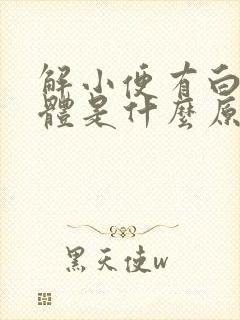 解小便有白
體是什麼原
黑天使w